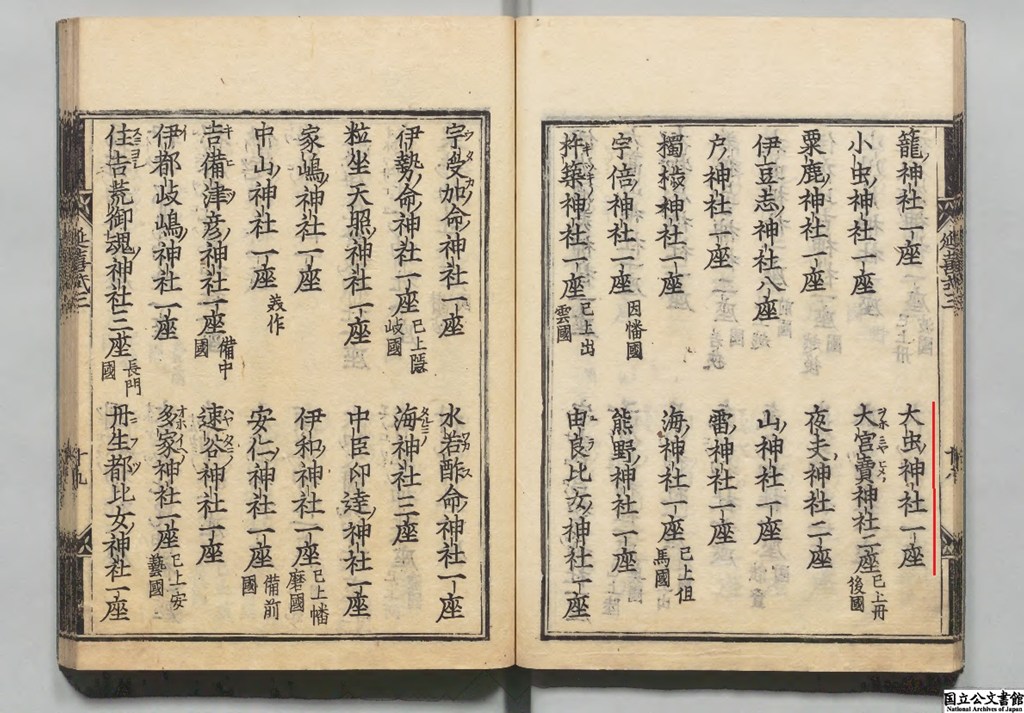 籠神社一座　大虫神社一座
小虫神社一座　大宮賣神社二座 已上丹後國
粟鹿神社一座　夜夫神社二座
伊豆志神社八座　山神社一座
戸神社一座　雷神社一座
㯮椒神社一座　海神社一座 已上但馬國
宇倍神社一座 因幡國　熊野神社一座
杵築神社一座 已上出雲國　由良比女神社一座
宇受加命神社一座　水若酢命神社一座
伊勢命神社一座 已上隠岐國　海神社三座
粒坐天照神社一座　中臣印達神社一座
家嶋神社一座　伊和神社一座 已上幡磨國
中山神社一座 美作　安仁神社一座 備前國
吉備津彦神社一座 備中國　速谷神社一座
伊都岐嶋神社一座　多家神社一座 已上安藝國
住吉荒御魂神社三座 長門國　丹生都比女神社一座
延喜式三
十八
延喜式三
十九
国立公文書館
National Archives of Japan